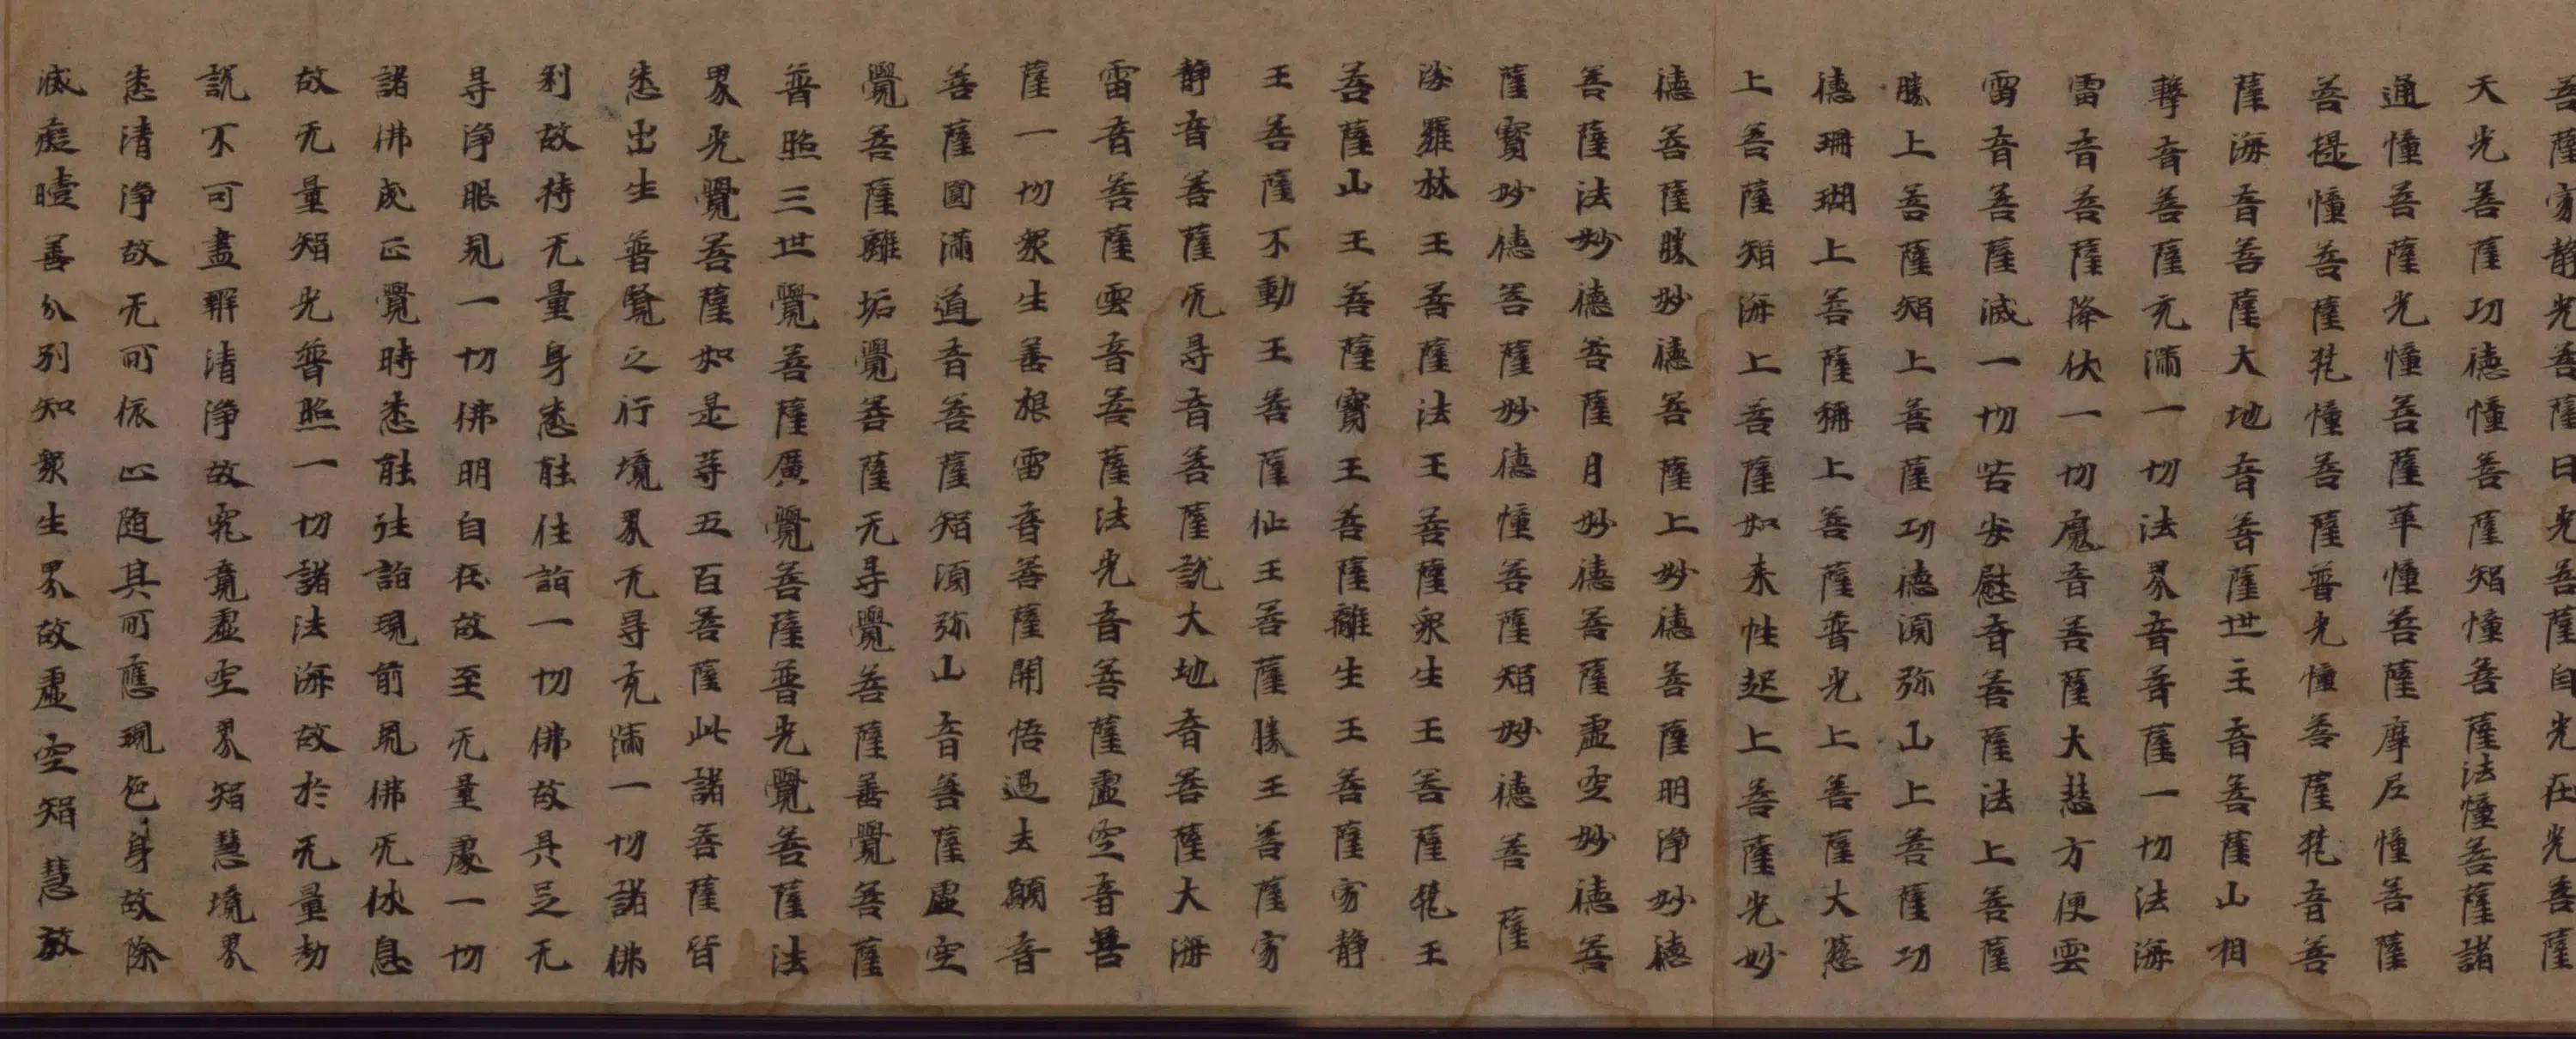 菩薩寂静光菩薩日光菩薩自光在光菩薩
天光菩薩功德幢菩薩智幢菩薩法幢菩薩諸
通幢菩薩光幢菩薩華幢菩薩摩尼幢菩薩
菩提幢菩薩梵幢菩薩普光幢菩薩梵音菩
薩海音菩薩大地音菩薩世主音菩薩山相
擊音菩薩充滿一切法界音菩薩一切法海
雷音菩薩降伏一切魔音菩薩大悲方便雲
雷音菩薩滅一切苦安慰音菩薩法上菩薩
勝上菩薩智上菩薩功德須弥山上菩薩功
德珊瑚上菩薩稱上菩薩普光上菩薩大慈
上菩薩智海上菩薩如来性起上菩薩光妙
德菩薩勝妙德菩薩上妙德菩薩明淨妙德
菩薩法妙德菩薩月妙德菩薩虛空妙德菩
薩寶妙德菩薩妙德幢菩薩智妙德菩薩
娑羅林王菩薩法王菩薩衆生王菩薩梵王
菩薩山王菩薩寶王菩薩離生王菩薩寂静
王菩薩不動王菩薩仙王菩薩勝王菩薩寂
静音菩薩无㝵音菩薩說大地音菩薩大海
雷音菩薩雲音菩薩法光音菩薩虛空音菩
薩一切衆生善根雷音菩薩開悟過去願音
菩薩圓滿道音菩薩智須弥山音菩薩虛空
覺菩薩離垢覺菩薩无㝵覺菩薩善覺菩薩
普照三世覺菩薩廣覺菩薩普光覺菩薩法
界光覺菩薩如是等五百菩薩此諸菩薩皆
悉出生普賢之行境界无㝵充滿一切諸佛
刹故持无量身悉能往詣一切佛故具足无
㝵淨眼見一切佛明自在故至无量處一切
諸佛成正覺時悉能往詣現前見佛无休息
故无量智光普照一切諸法海故於无量劫
說不可盡辯清淨故究竟虛空界智慧境界
悉清淨故无所依止隨其所應現色身故除
滅癡曀善分別知衆生界故虛空智慧放